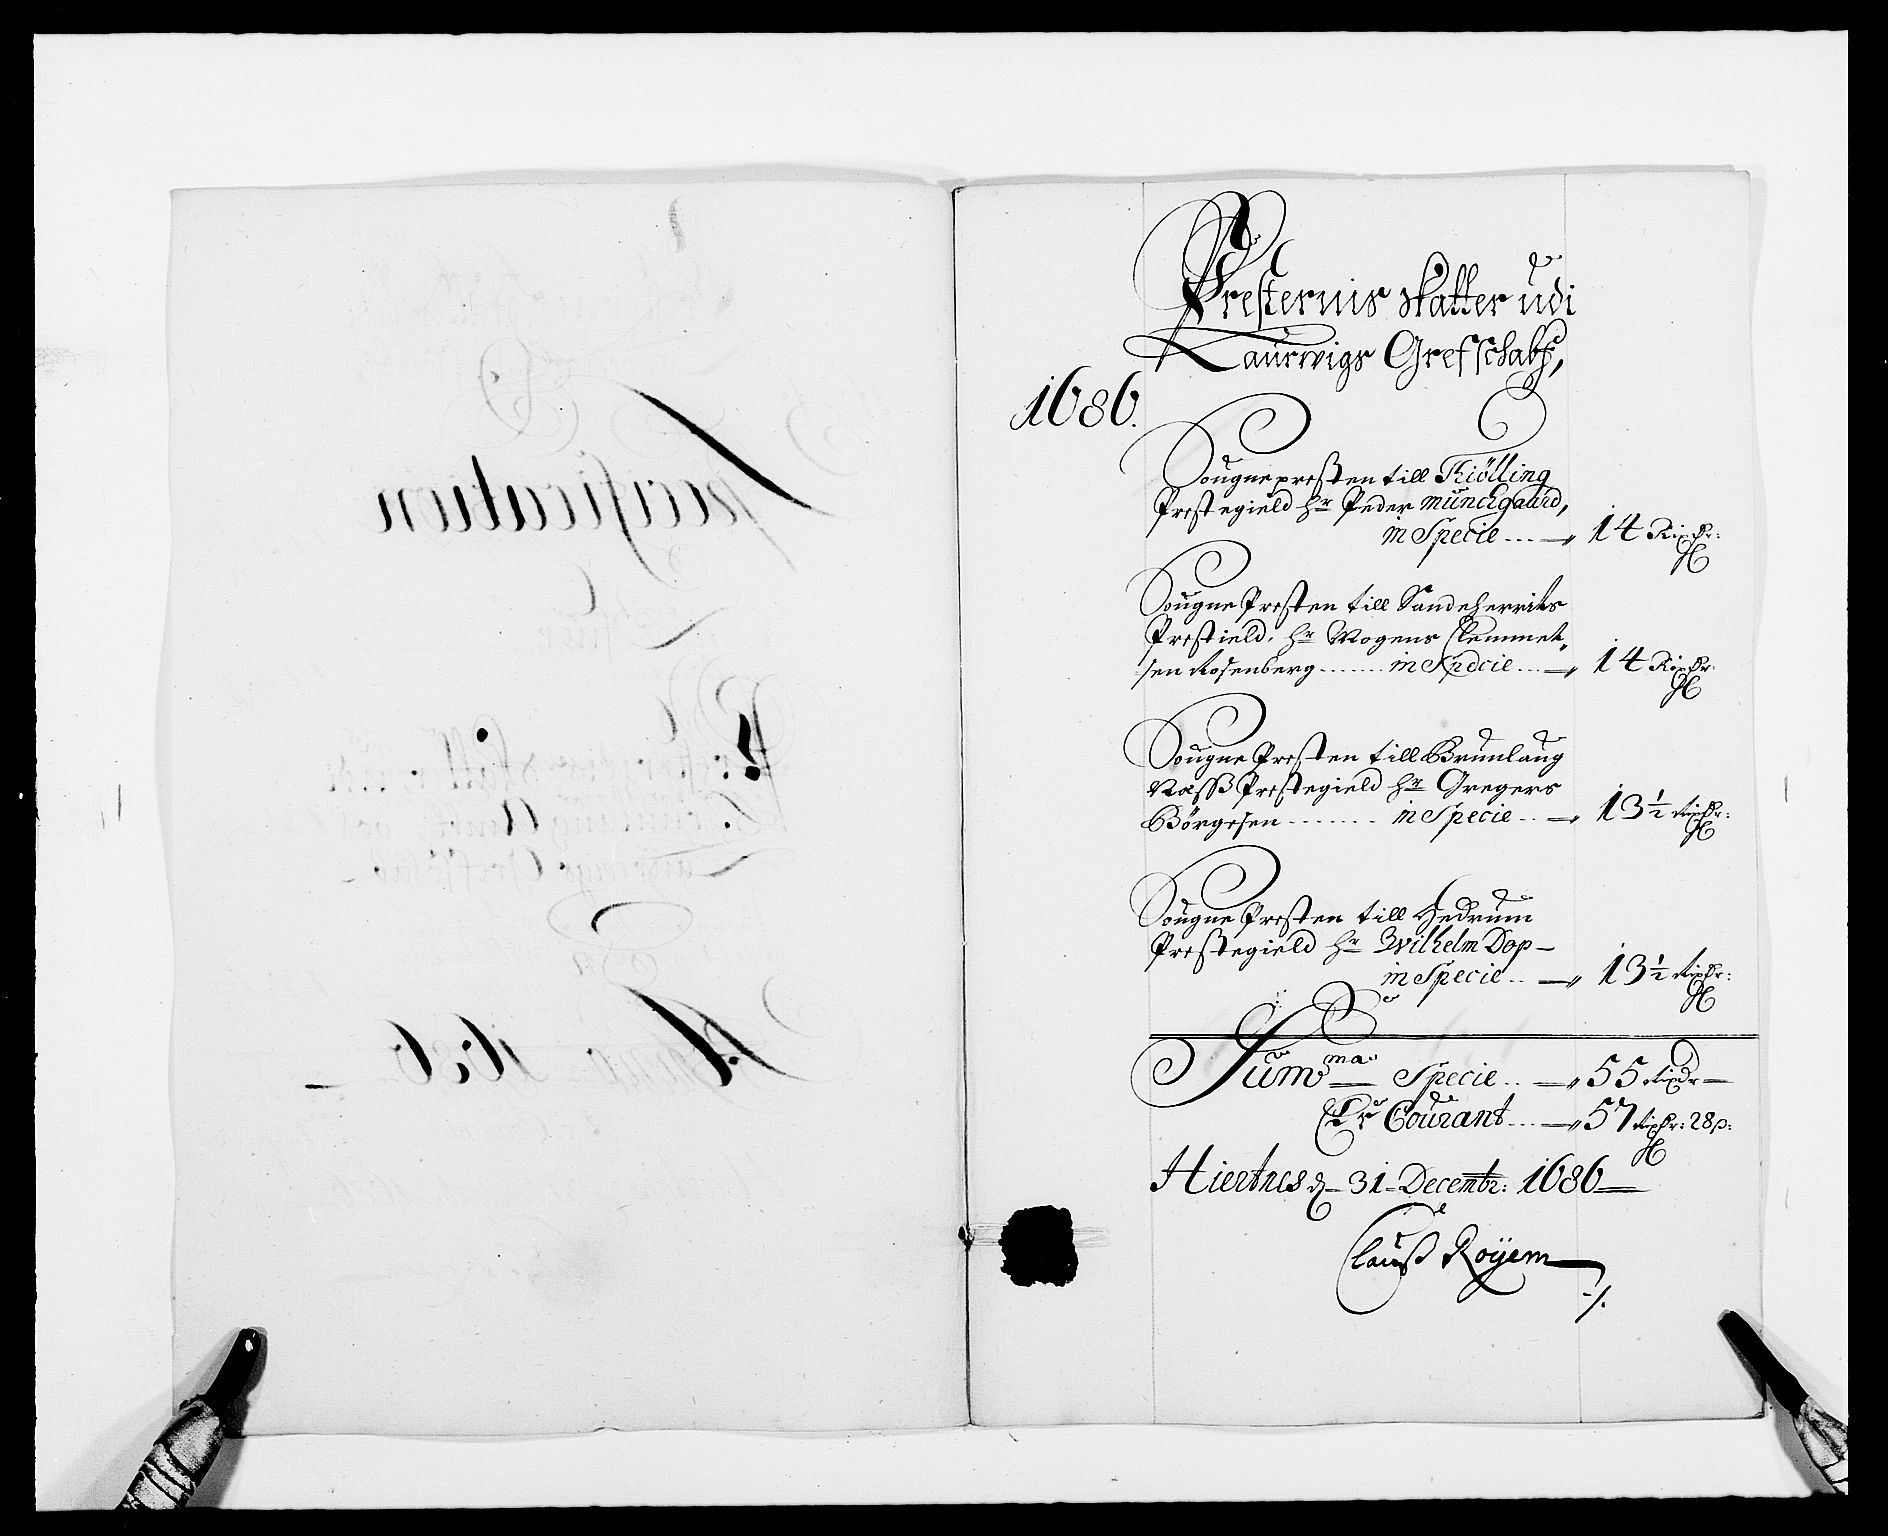 Presternis skatter udi
Laurwigs Grefschabs,
1686.
Sougnepresten till Tiölling
Prestegield hr Peder Munchgaard,
in Specie ... 14 Rixdr:
Sougne Presten till Sandeherrits
Prestield. hr Mogens Clemmet„
sen Rosenberg ...... in Specie ... 14 Rixdr:
Sougne Presten till Brunlaug
Næss Prestegield hr Gregers
Börgesen ....... in Specie .. 13½ Rixdr:
Sougne Presten till Hedrum
Prestegield hr Wilhelm Dop –
in Specie .. 13½ Rixdr:
Summa Specie .. 55 Rixdr
Er Courant ... 57 Rixdr: 28 s:
Hiertnes d – 31 – Decembr: 1686
Clauss Röyem